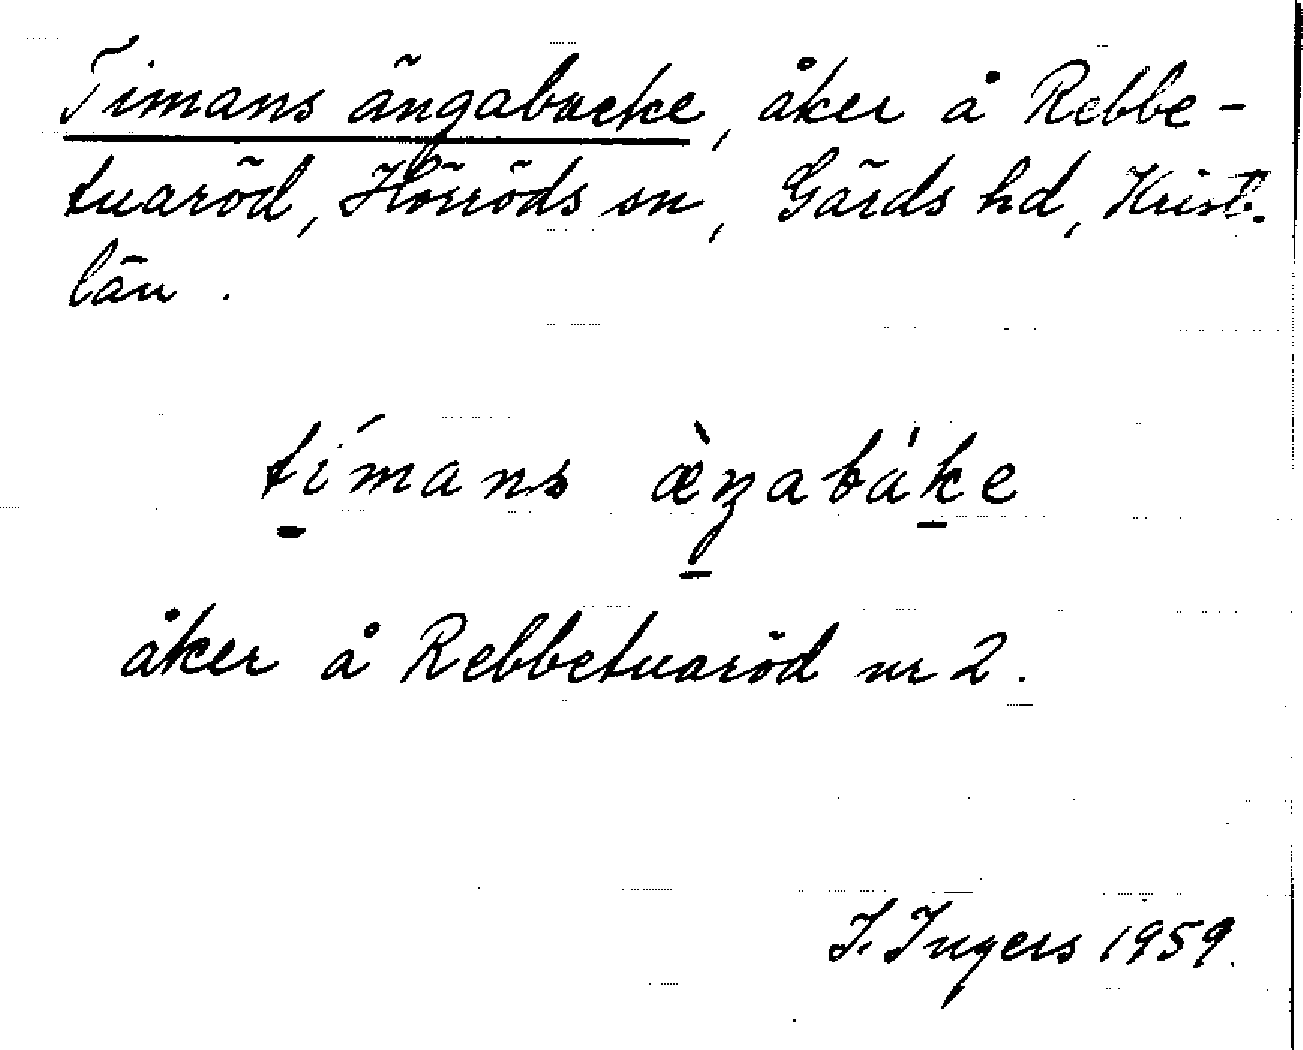 Timans ängabacke, åker å Rebbe-
tuaröd, Hörröds sn, Gärds hd, Krist.
län.
tímans æ̀ŋabàke
åker å Rebbetuaröd nr 2.
I. Ingers 1959.